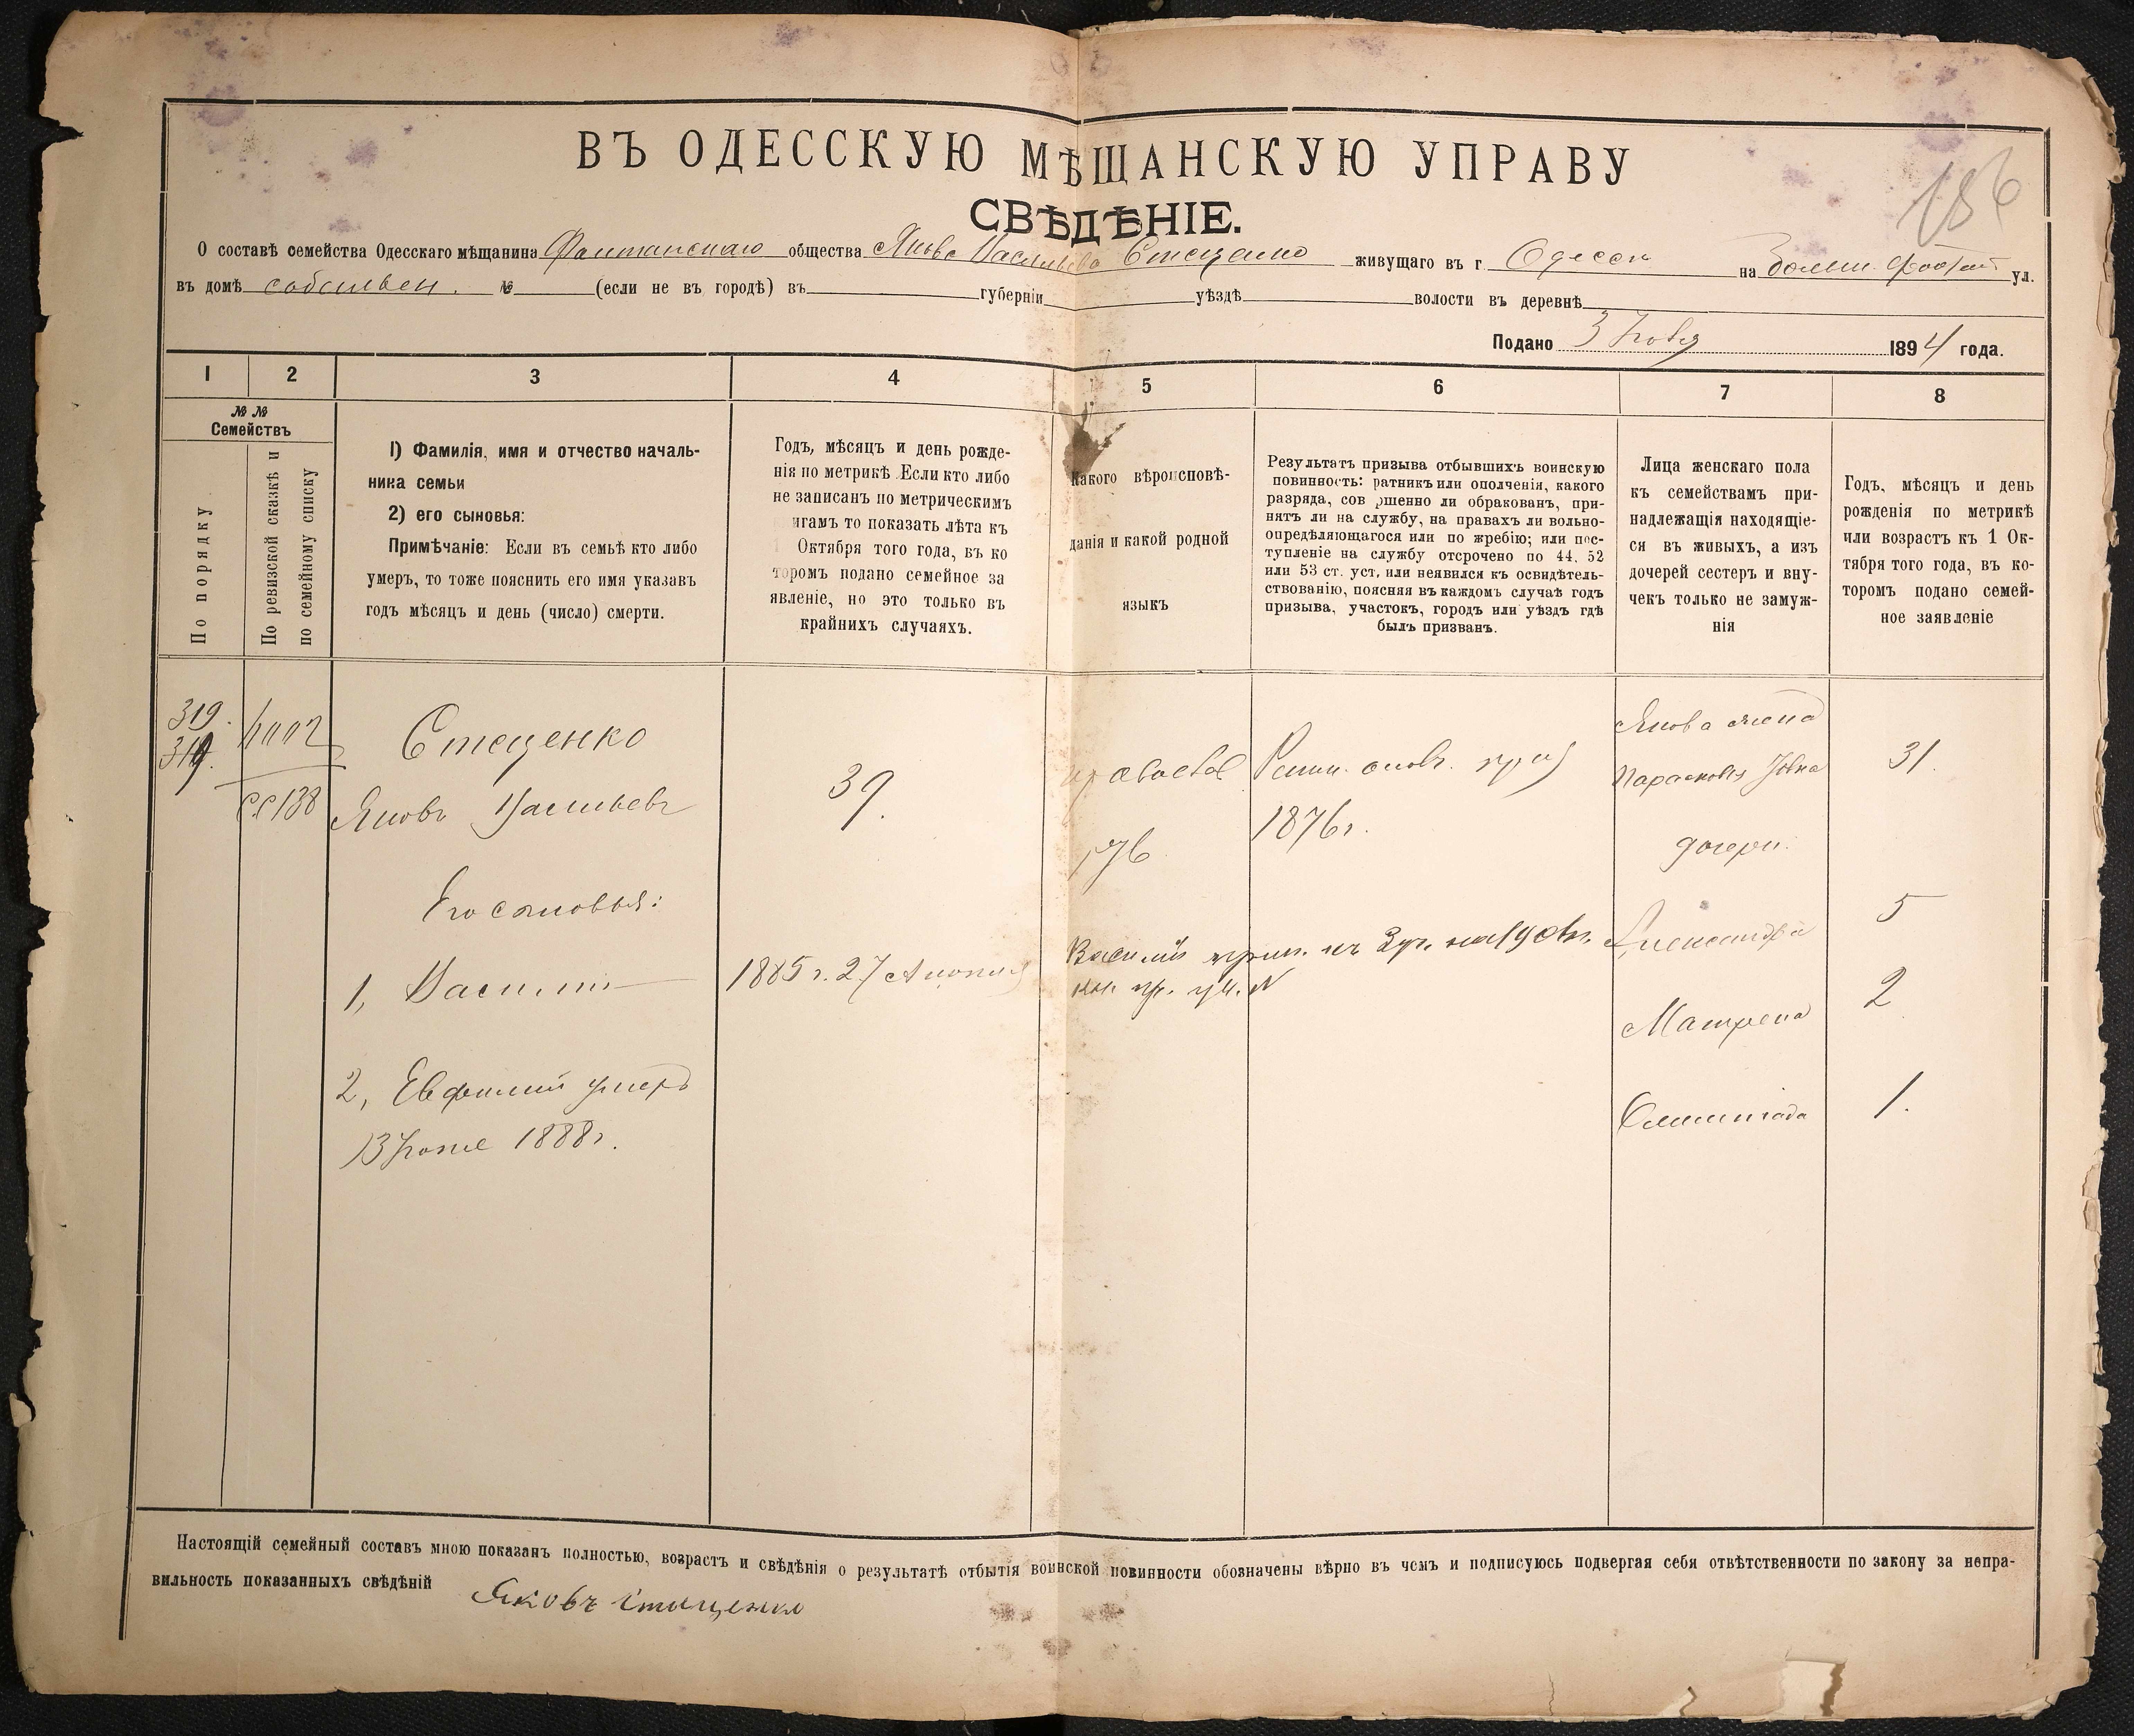 186
ВЪ ОДЕССКУЮ МѢЩАНСКУЮ УПРАВУ
СВѢДѢНІЕ.
О составѣ семейства Одесскаго мѣщанина Фонтанскаго общества Якова Васильева Стеценко живущаго въ г. Одессѣ на Больш. Фонтан ул.
въ домѣ собствен. № (если не въ городѣ) въ губерніи уѣздѣ волости въ деревнѣ
Подано 3 Ноября 1894 года.
1 2 3 4 5 6 7 8
№ №
Семействъ
По порядку
По ревизской сказкѣ и
по семейному списку
1) Фамилія, имя и отчество началь-
ника семьи
2) его сыновья:
Примѣчаніе: Если въ семьѣ кто либо
умеръ, то тоже пояснить его имя указавъ
годъ мѣсяцъ и день (число) смерти.
Годъ, мѣсяцъ и день рожде-
нія по метрикѣ. Если кто либо
не записанъ по метрическимъ
игамъ то показать лѣта къ
1 Октября того года, въ ко
торомъ подано семейное за
явленіе, но это только въ
крайнихъ случаяхъ.
Какого вѣроисповѣ-
данія и какой родной
языкъ
Результатъ призыва отбывшихъ воинскую
повинность: ратникъ или ополченія, какого
разряда, сов ршенно ли обракованъ, при-
нятъ ли на службу, на правахъ ли вольно-
опредѣляющагося или по жребію; или пос-
тупленіе на службу отсрочено по 44, 52
или 53 ст. уст, или неявился къ освидѣтель-
ствованію, поясняя въ каждомъ случаѣ годъ
призыва, участокъ, городъ или уѣздъ гдѣ
былъ призванъ.
Лица женскаго пола
къ семействамъ при-
надлежащія находящіе-
ся въ живыхъ, а изъ
дочерей сестеръ и вну-
чекъ только не замуж-
нія
Годъ, мѣсяцъ и день
рожденія по метрикѣ
или возрастъ къ 1 Ок-
тября того года, въ ко-
торомъ подано семей-
ное заявленіе
319.
319.
138
Стеценко
Яковъ Васильевъ
39.
православ
1876 г.
Якова жена
Парасковья
31.
дочери.
Его сыновья:
1, Василій
1885 г. 27 Апрѣля
Василій
Александра
5
Матрена
2
2, Евфимій умеръ
13 Іюня 1888 г.
Олимпіада
1.
Настоящій семейный составъ мною показанъ полностью, возрастъ и свѣдѣнія о результатѣ отбытія воинской повинности обозначены вѣрно въ чемъ и подписуюсь подвергая себя отвѣтственности по закону за непра-
вильность показанныхъ свѣдѣній Яковъ Стаценко